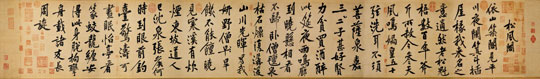 松風閣
依山築閣見平
川夜闌箕斗插
屋椽我來名之
意適然老松魁
梧數百年斧
斤所赦今參天
風鳴媧皇五十
弦洗耳不須
菩薩泉嘉
三二子甚好賢
力貧買酒醉
此筵夜雨鳴廊
到曉懸相看
不歸臥僧氈泉
枯石燥復潺湲
山川光暉為我
妍野僧早飢
不能饘曉
見寒溪有炊
煙東坡道人
已沈泉張侯何
時到眼前釣
臺驚濤可
晝眠怡亭看
篆蛟龍纏安
得此身脫拘攣
舟載諸友長
周旋